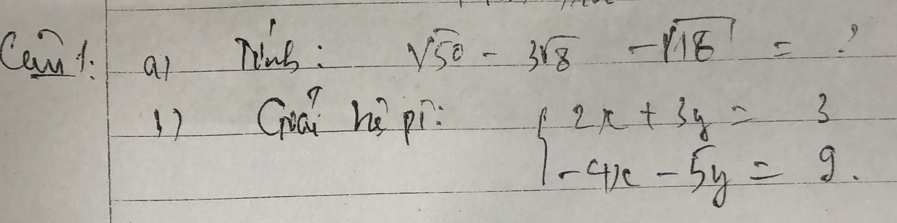 Câu 1: a) Tính: √50 - 3√8 - √18 = ?
b) Giải hệ pt: { 2x + 3y = 3
-4x - 5y = 9.